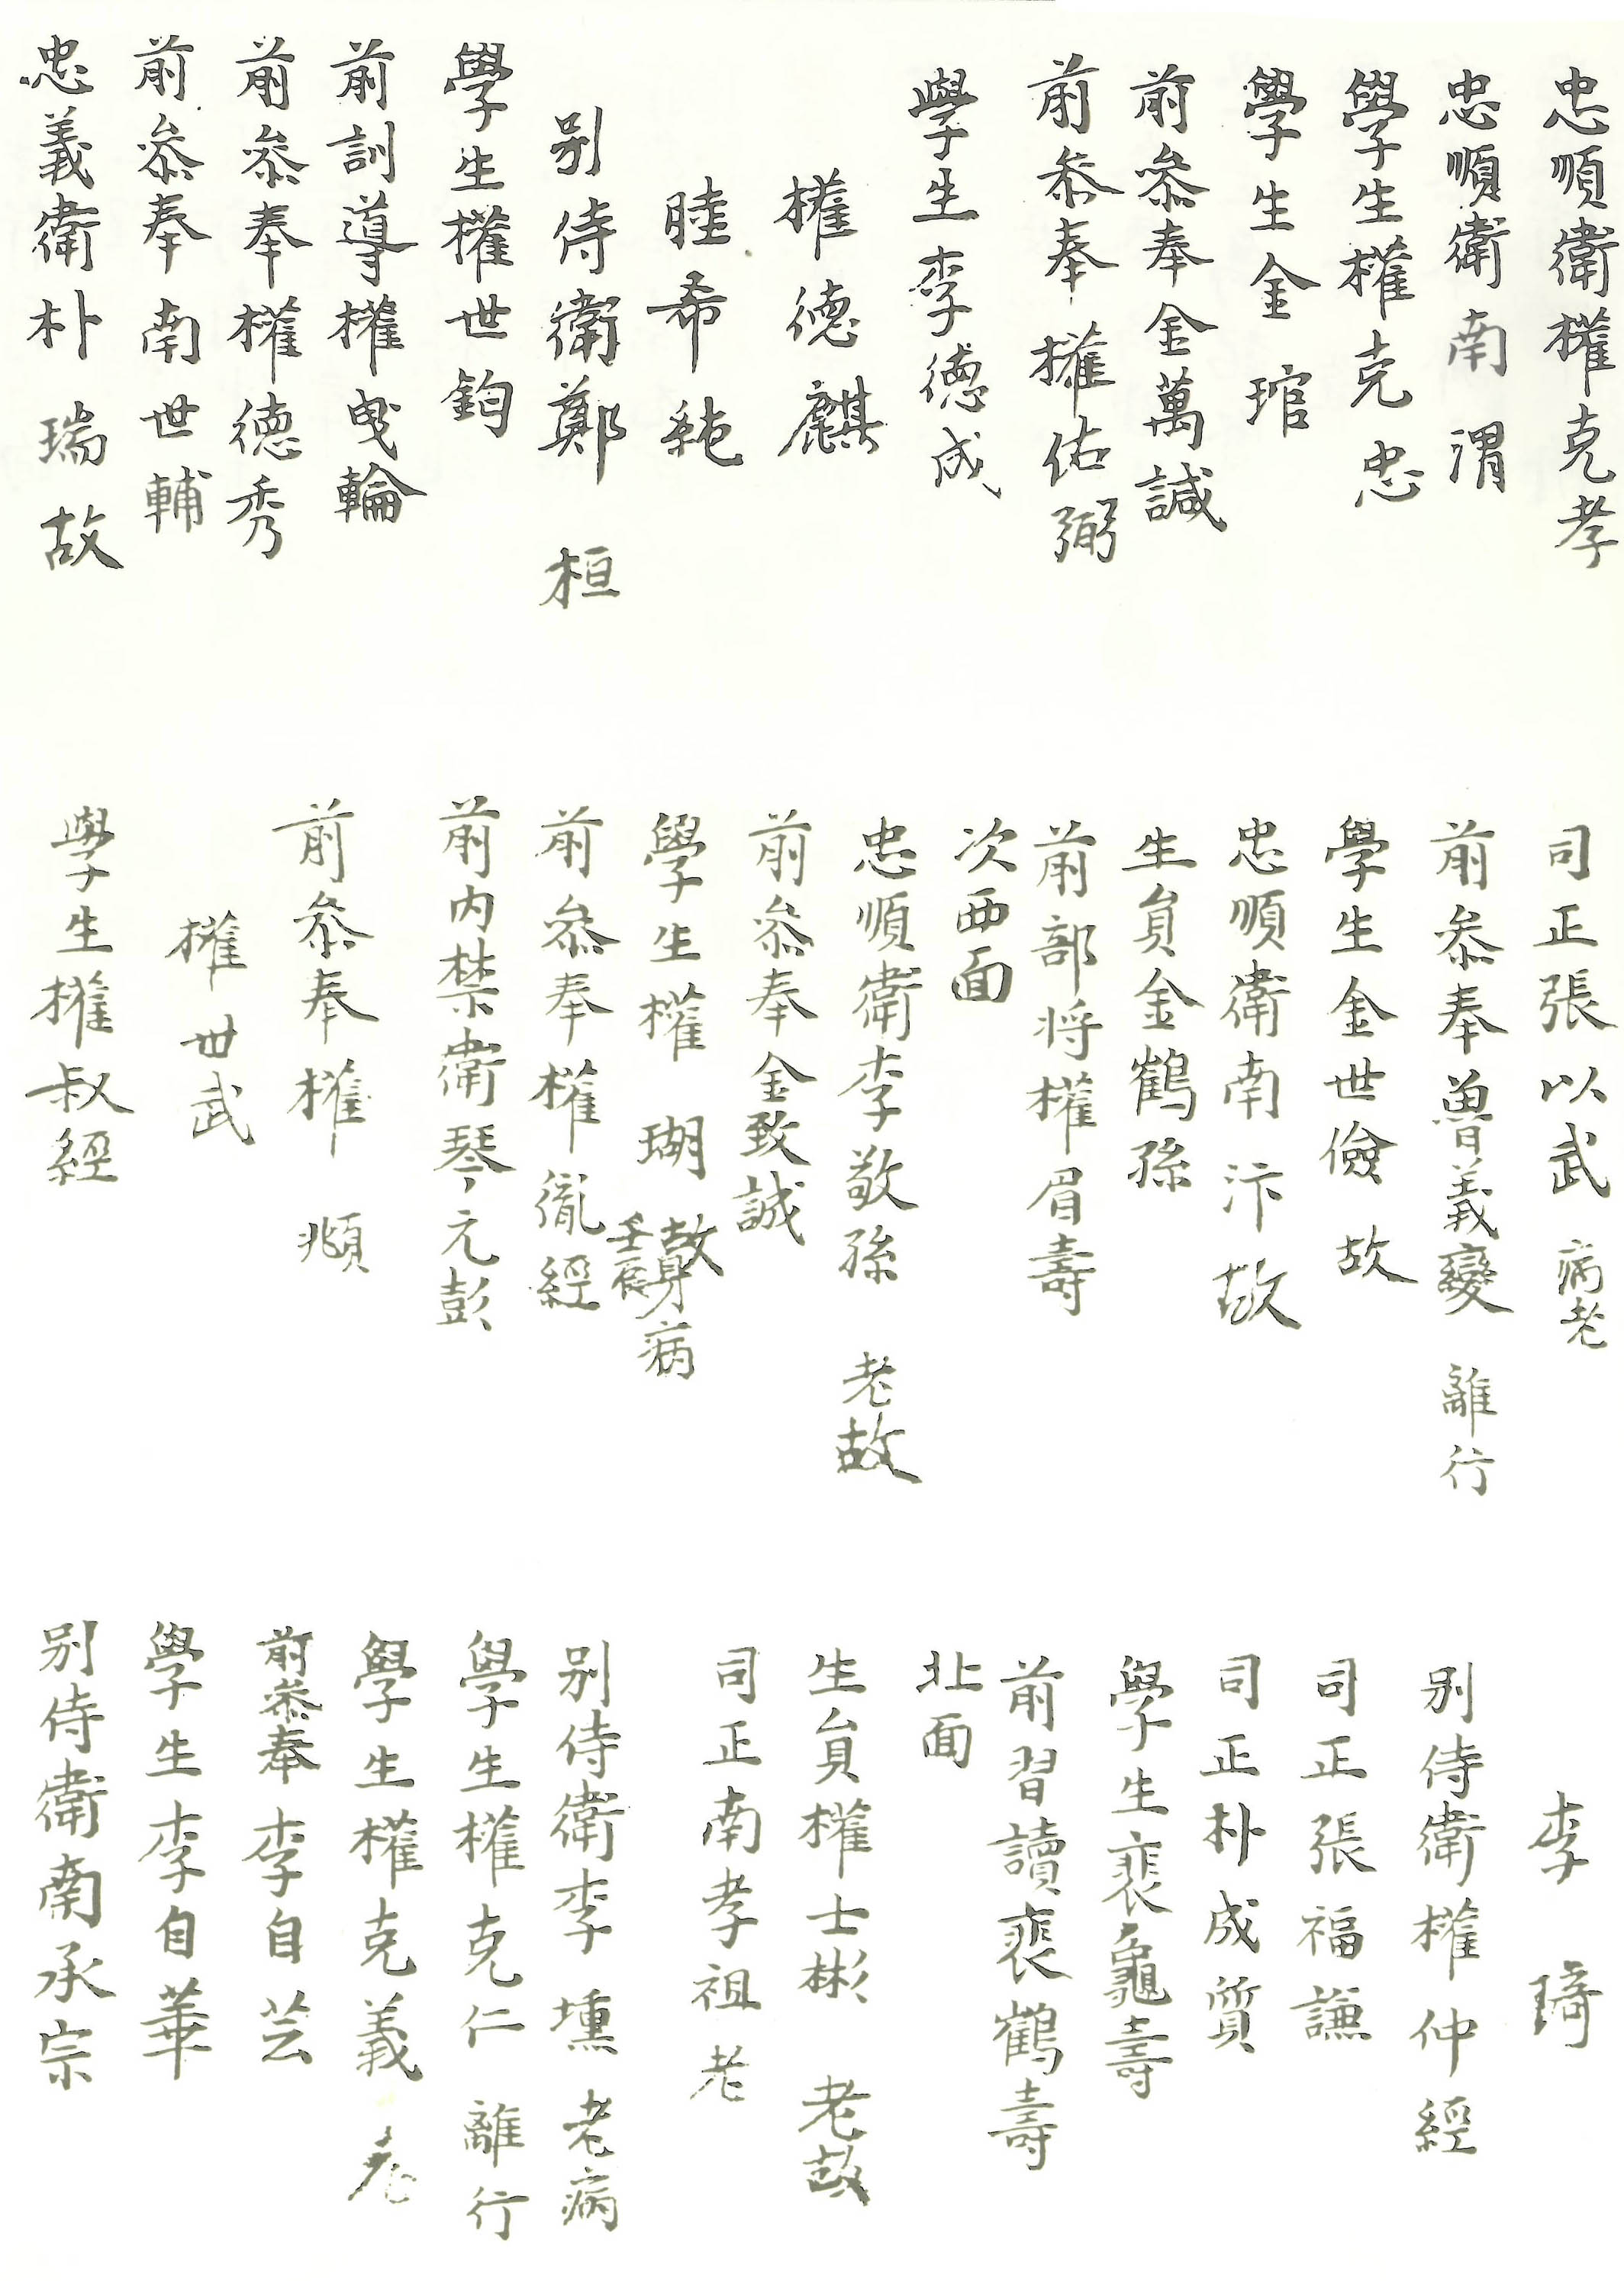 忠順衛權克孝
忠順衛南渭
學生權克忠
學生金琯
前叅奉金萬諴
前叅奉權佑弼
學生李德成
權德麒
眭希紞
別侍衛鄭桓
學生權世鈞
前訓導權曵輪
前叅奉權德秀
前叅奉南世輔
忠義衛朴瑞故
司正張以武病老
前叅奉曽義變離行
學生金世儉故
忠順衛南汴故
生員金鶴孫
前部将權眉壽
次西面
忠順衛李敬孫老故
前叅奉金致誠
學生權瑚故
壬辰身病
前叅奉權胤經
前内禁衛琴元彭
前叅奉權頫
權世武
學生權叔經
李琦
別侍衛權仲經
司正張福謙
司正朴成質
學生裵龜壽
前習讀裵鶴壽
北面
生員權士彬老故
司正南孝祖老
別侍衛李壎老病
學生權克仁離行
學生權克義老
前叅奉李自芸
學生李自華
別侍衛南承宗